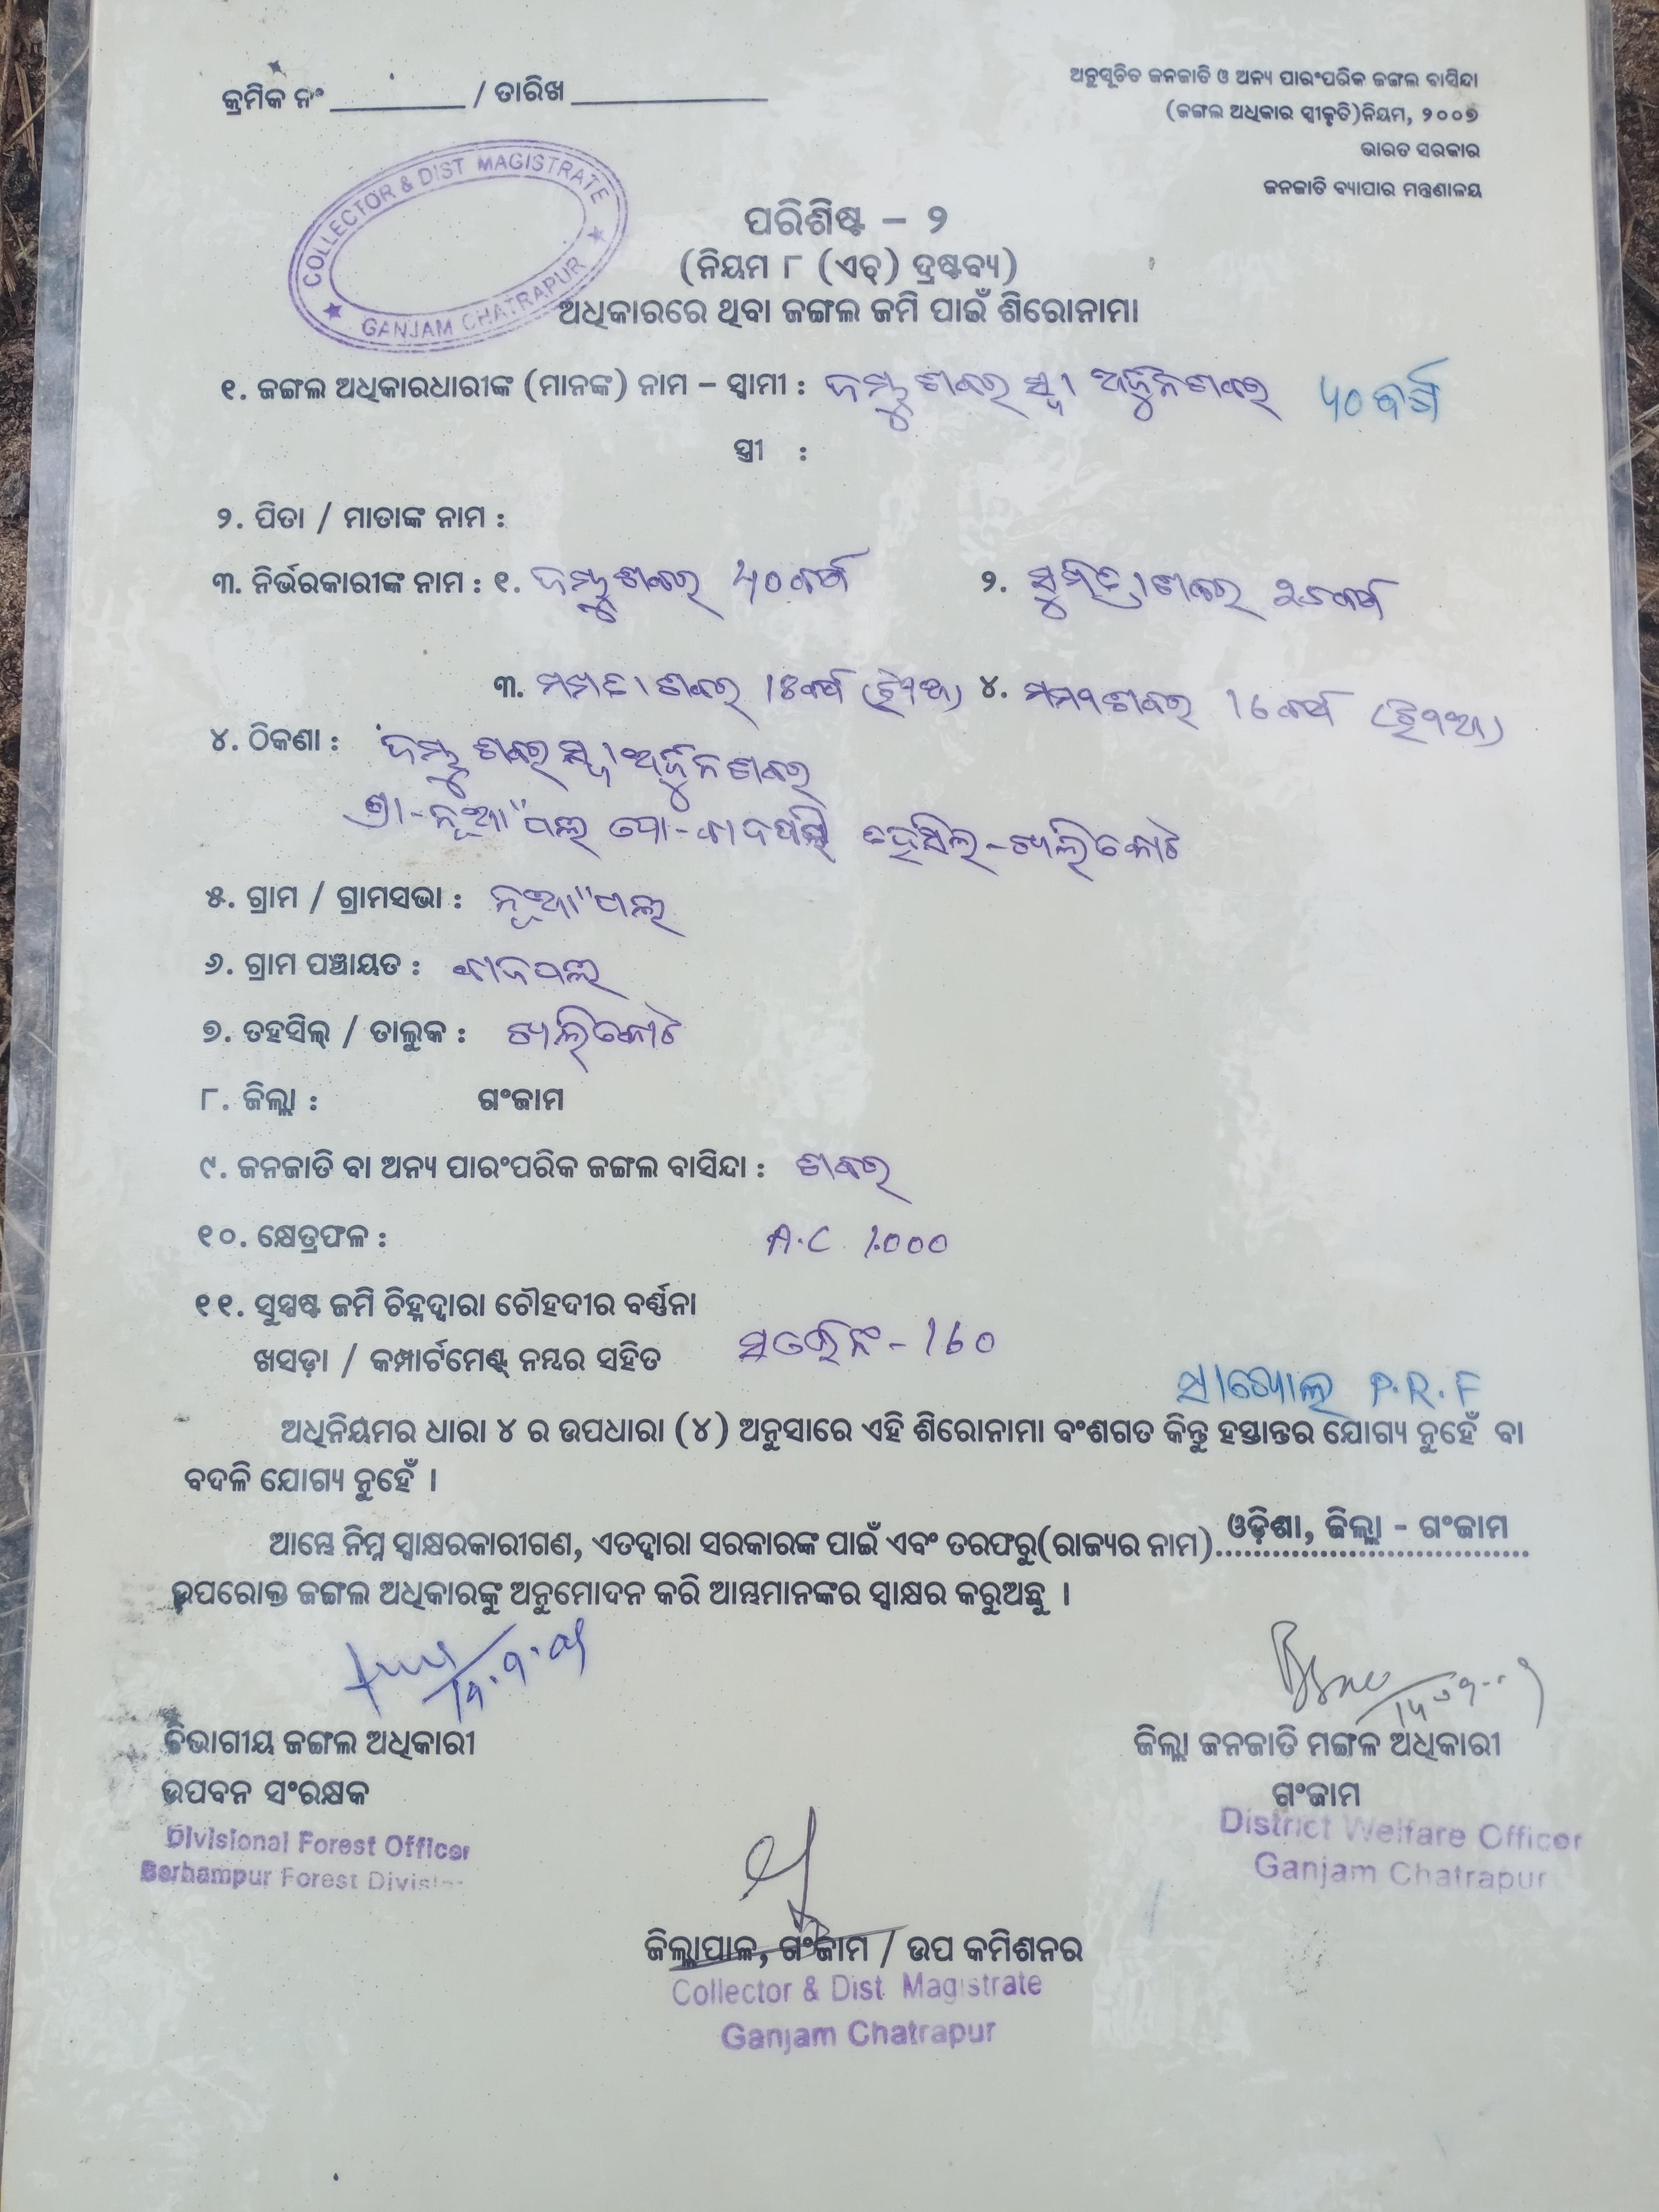 କ୍ରମିକ ନଂ ________ / ତାରିଖ ____________
ଅନୁସୂଚିତ ଜନଜାତି ଓ ଅନ୍ୟ ପାରଂପରିକ ଜଙ୍ଗଲ ବାସିନ୍ଦା
(ଜଙ୍ଗଲ ଅଧିକାର ସ୍ୱୀକୃତି)ନିୟମ, ୨୦୦୭
ଭାରତ ସରକାର
ଜନଜାତି ବ୍ୟାପାର ମନ୍ତ୍ରଣାଳୟ
COLLECTOR & DIST MAGISTRATE
GANJAM CHATRAPUR
ପରିଶିଷ୍ଟ – ୨
(ନିୟମ ୮ (ଏଚ୍) ଦ୍ରଷ୍ଟବ୍ୟ)
ଅଧିକାରରେ ଥିବା ଜଙ୍ଗଲ ଜମି ପାଇଁ ଶିରୋନାମା
୧. ଜଙ୍ଗଲ ଅଧିକାରଧାରୀଙ୍କ (ମାନଙ୍କ) ନାମ – ସ୍ୱାମୀ : ଶବର ଅର୍ଜୁନ ଶବର ୫୦ ବର୍ଷ
ସ୍ତ୍ରୀ :
୨. ପିତା / ମାତାଙ୍କ ନାମ :
୩. ନିର୍ଭରକାରୀଙ୍କ ନାମ : ୧. ଶବର ୫୦ ବର୍ଷ ୨. ସୁମିତ୍ରା ଶବର ବର୍ଷ
୩. ମମତା ଶବର 18 ବର୍ଷ (ଝିଅ) ୪. ଶବର 16 ବର୍ଷ (ଝିଅ)
୪. ଠିକଣା : ଶବର ଅର୍ଜୁନ ଶବର
ଗ୍ରା-ନୂଆଁପଲ୍ଲୀ ପୋ- ତହସିଲ-ଖଲିକୋଟ
୫. ଗ୍ରାମ / ଗ୍ରାମସଭା : ନୂଆଁପଲ୍ଲୀ
୬. ଗ୍ରାମ ପଞ୍ଚାୟତ :
୭. ତହସିଲ୍ / ତାଲୁକ : ଖଲିକୋଟ
୮. ଜିଲ୍ଲା : ଗଂଜାମ
୯. ଜନଜାତି ବା ଅନ୍ୟ ପାରଂପରିକ ଜଙ୍ଗଲ ବାସିନ୍ଦା : ଶବର
୧୦. କ୍ଷେତ୍ରଫଳ : A.C 1.000
୧୧. ସୁସ୍ପଷ୍ଟ ଜମି ଚିହ୍ନଦ୍ୱାରା ଚୌହଦୀର ବର୍ଣ୍ଣନା
ଖସଡ଼ା / କମ୍ପାର୍ଟମେଣ୍ଟ୍ ନମ୍ବର ସହିତ - 160
P.R.F
ଅଧିନିୟମର ଧାରା ୪ ର ଉପଧାରା (୪) ଅନୁସାରେ ଏହି ଶିରୋନାମା ବଂଶଗତ କିନ୍ତୁ ହସ୍ତାନ୍ତର ଯୋଗ୍ୟ ନୁହେଁ ବା
ବଦଳି ଯୋଗ୍ୟ ନୁହେଁ ।
ଆମ୍ଭେ ନିମ୍ନ ସ୍ୱାକ୍ଷରକାରୀଗଣ, ଏତଦ୍ୱାରା ସରକାରଙ୍କ ପାଇଁ ଏବଂ ତରଫରୁ(ରାଜ୍ୟର ନାମ) ଓଡ଼ିଶା, ଜିଲ୍ଲା - ଗଂଜାମ
ଉପରୋକ୍ତ ଜଙ୍ଗଲ ଅଧିକାରଙ୍କୁ ଅନୁମୋଦନ କରି ଆମ୍ଭମାନଙ୍କର ସ୍ୱାକ୍ଷର କରୁଅଛୁ ।
ବିଭାଗୀୟ ଜଙ୍ଗଲ ଅଧିକାରୀ
ଉପବନ ସଂରକ୍ଷକ
Divisional Forest Officer
Berhampur Forest Division
ଜିଲ୍ଲା ଜନଜାତି ମଙ୍ଗଳ ଅଧିକାରୀ
ଗଂଜାମ
District Welfare Officer
Ganjam Chatrapur
ଜିଲ୍ଲାପାଳ, ଗଂଜାମ / ଉପ କମିଶନର
Collector & Dist. Magistrate
Ganjam Chatrapur